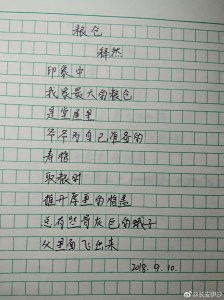 粮仓
释然
印象中
我家最大的粮仓
是堂屋里
爷爷为自己准备的
寿棺
取粮时
推开厚重的棺盖
总有些骨灰色的蛾子
从里面飞出来
2018.9.10.